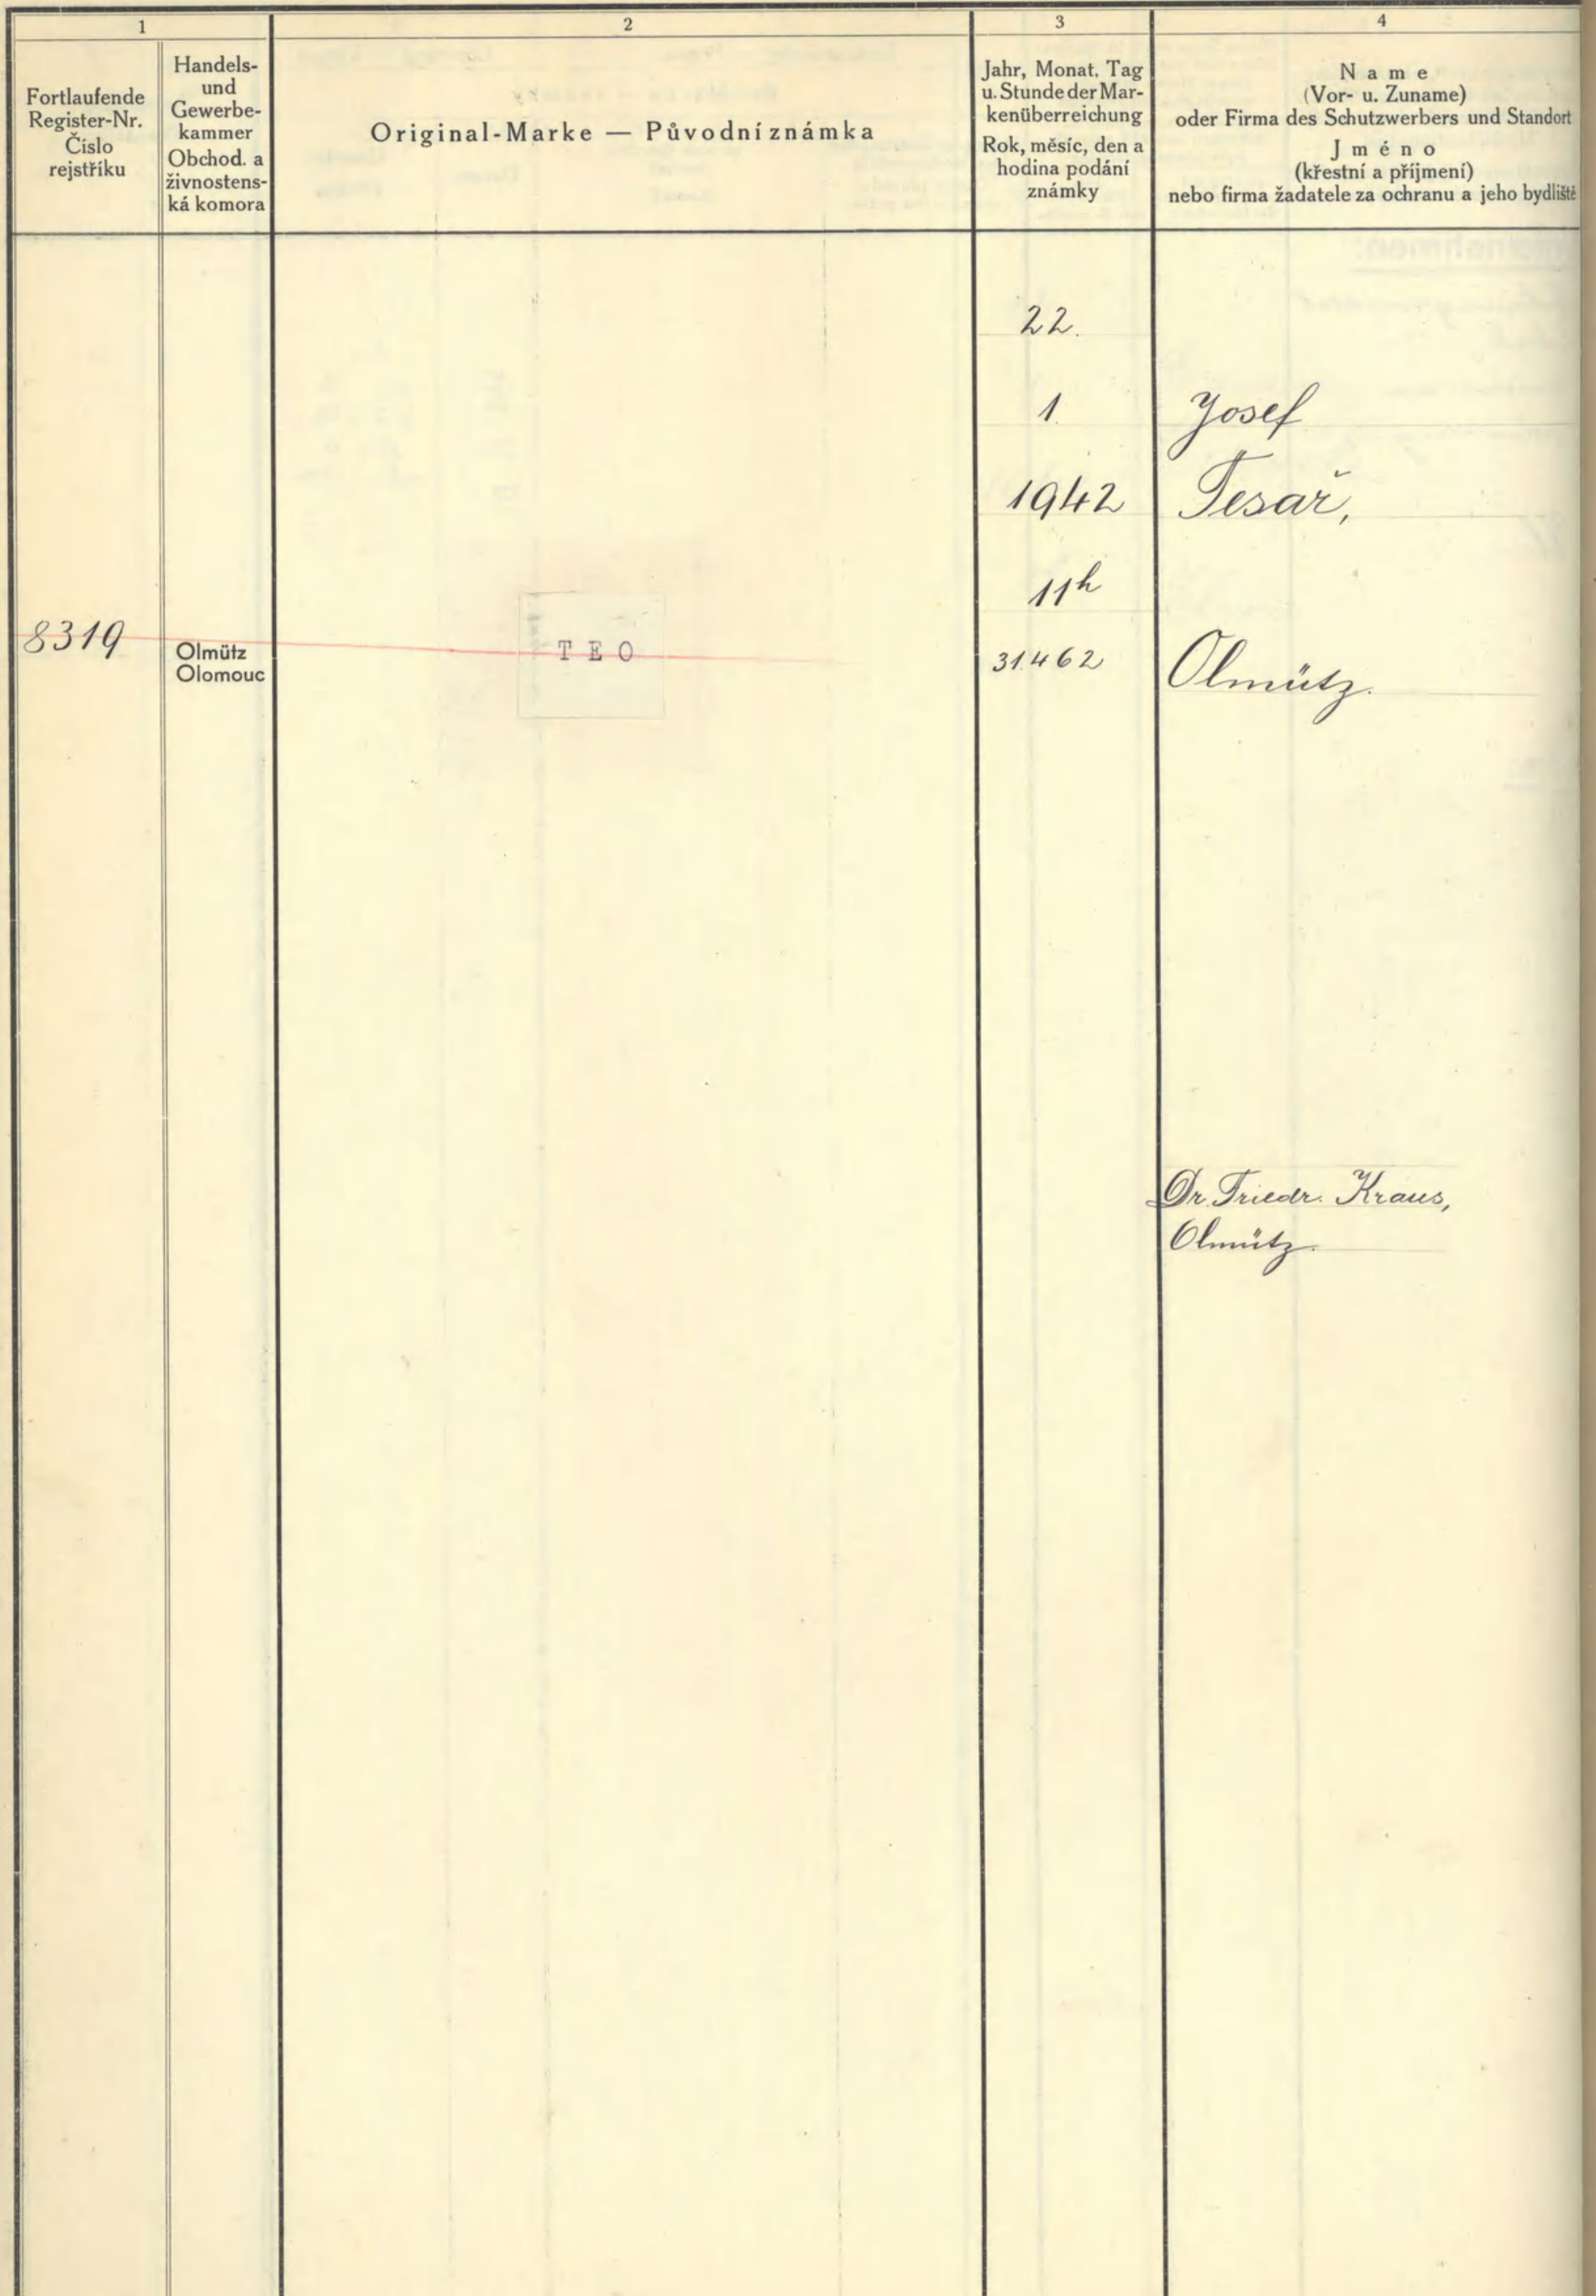 1
2
3
4
Fortlaufende
Register-Nr.
Číslo
rejstříku
Handels-
und
Gewerbe-
kammer
Obchod. a
živnostens-
ká komora
Original-Marke — Původní známka
Jahr, Monat, Tag
u. Stunde der Mar-
kenüberreichung
Rok, měsíc, den a
hodina podání
známky
Name
(Vor- u. Zuname)
oder Firma des Schutzwerbers und Standort
Jméno
(křestní a příjmení)
nebo firma žadatele za ochranu a jeho bydliště
22.
1.
Josef
1942
Tesař,
11h
8319
Olmütz
Olomouc
TEO
31.462
Olmütz.
Dr. Friedr. Kraus,
Olmütz.